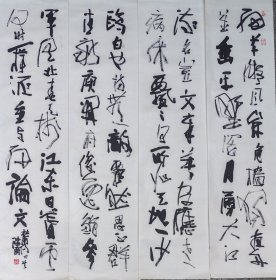 细草微风岸危樯獨夜舟
星垂平野闊月涌大江
流名豈文章著官應老
病休飄飄何所似天地一沙
鷗白也詩無敵飄然思不群
清新庾開府俊逸鮑參
軍渭北春天樹江東日暮雲
何時一樽酒重與細論文